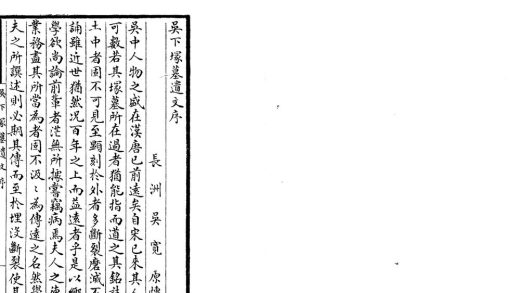 吳下塚墓遺文序
長洲吳寬原
吳中人物之盛在漢唐已前遠矣自宋已來其
可數若其塚墓所在過者猶能指而道之其銘
土中者固不可見至顯刻於外者多斷裂磨滅不
誦雖近世猶然况百年之上而益遠者乎是以
學欲尚論前輩者茫無所據嘗竊病焉夫人之
業務盡其所當為者固不汲〻為傳遠之名然
夫之所譔述則必期其傳而至於埋沒斷裂使其
吳下塚墓遺文序